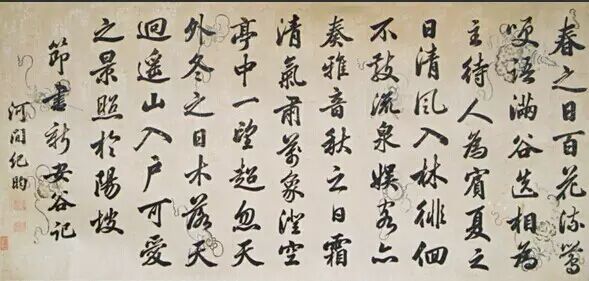 春之日百花流鶯
哢語滿谷迭相為
主待人為賓夏之
日清風入林徘徊
不散流泉娛客亦
奏雅音秋之日霜
清氣肅萬象澄空
亭中一望超忽天
外冬之日木落天
迥遙山入戶可愛
之景照於陽坡
節書新安谷記
河間紀昀